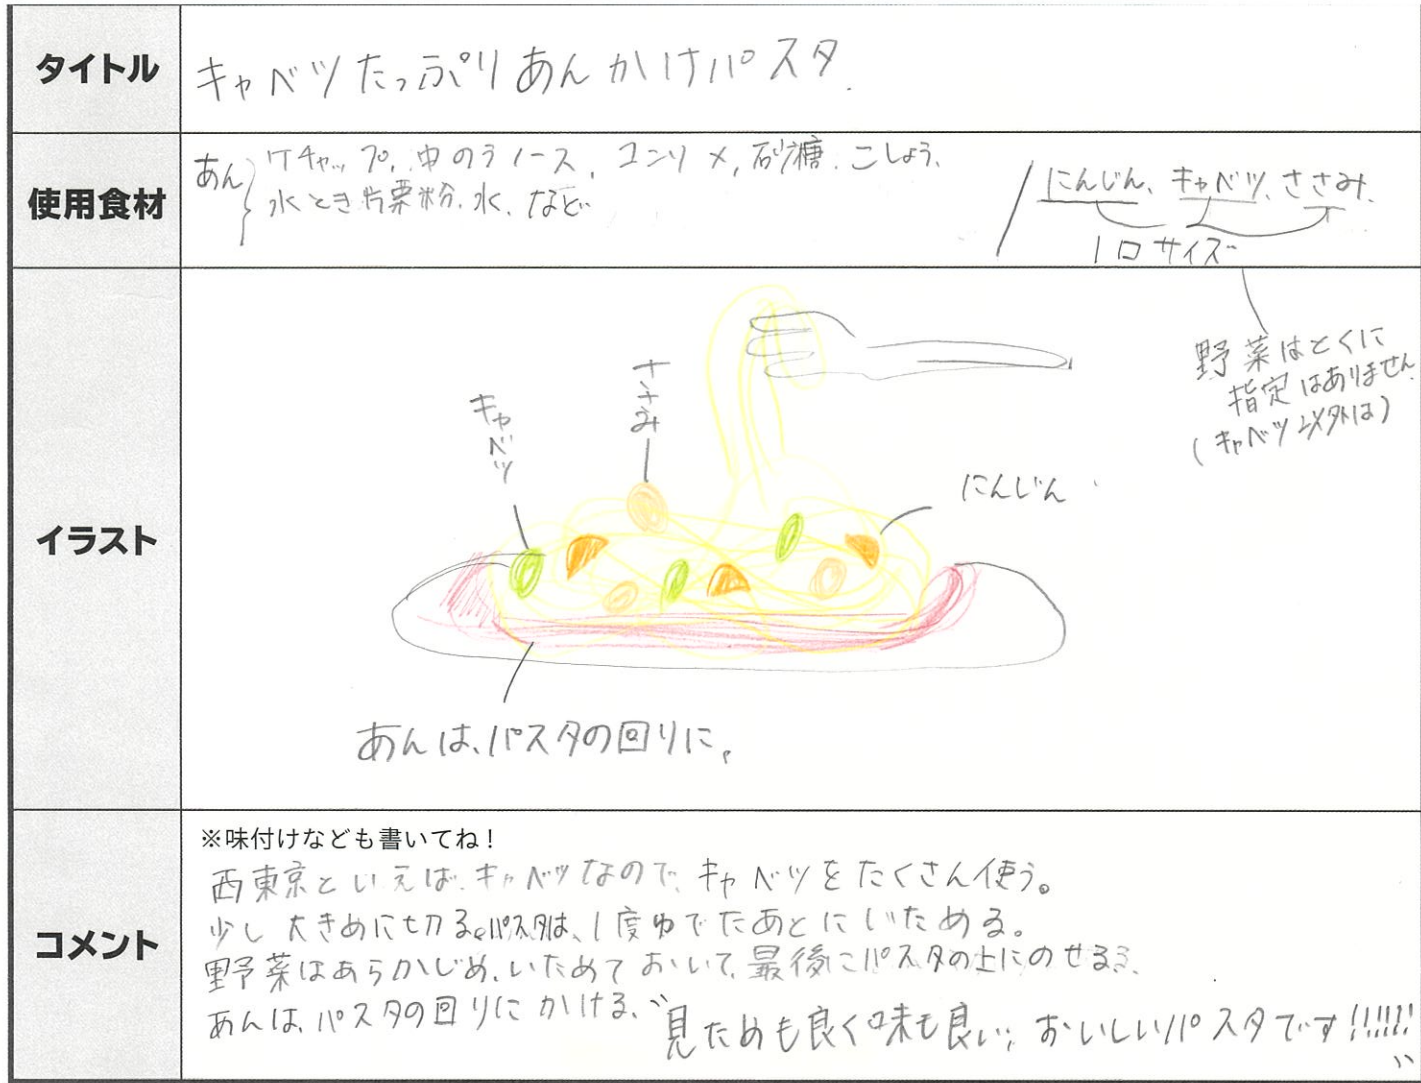 タイトル
キャベツたっぷりあんかけパスタ.
使用食材
あん ケチャップ, 中のうソース, コンソメ, 砂糖, こしょう,
水とき片栗粉, 水, など
にんじん、キャベツ、ささみ.
1口サイズ
野菜はとくに
指定はありません
(キャベツ以外は)
イラスト
キャベツ
ささみ
にんじん
あんは、パスタの回りに。
コメント
※味付けなども書いてね！
西東京といえば、キャベツなので、キャベツをたくさん使う。
少し大きめに切る。パスタは、1度ゆでたあとにいためる。
野菜はあらかじめ、いためておいて、最後にパスタの上にのせる
あんは、パスタの回りにかける、
見ためも良く味も良い、おいしいパスタです!!!!!!